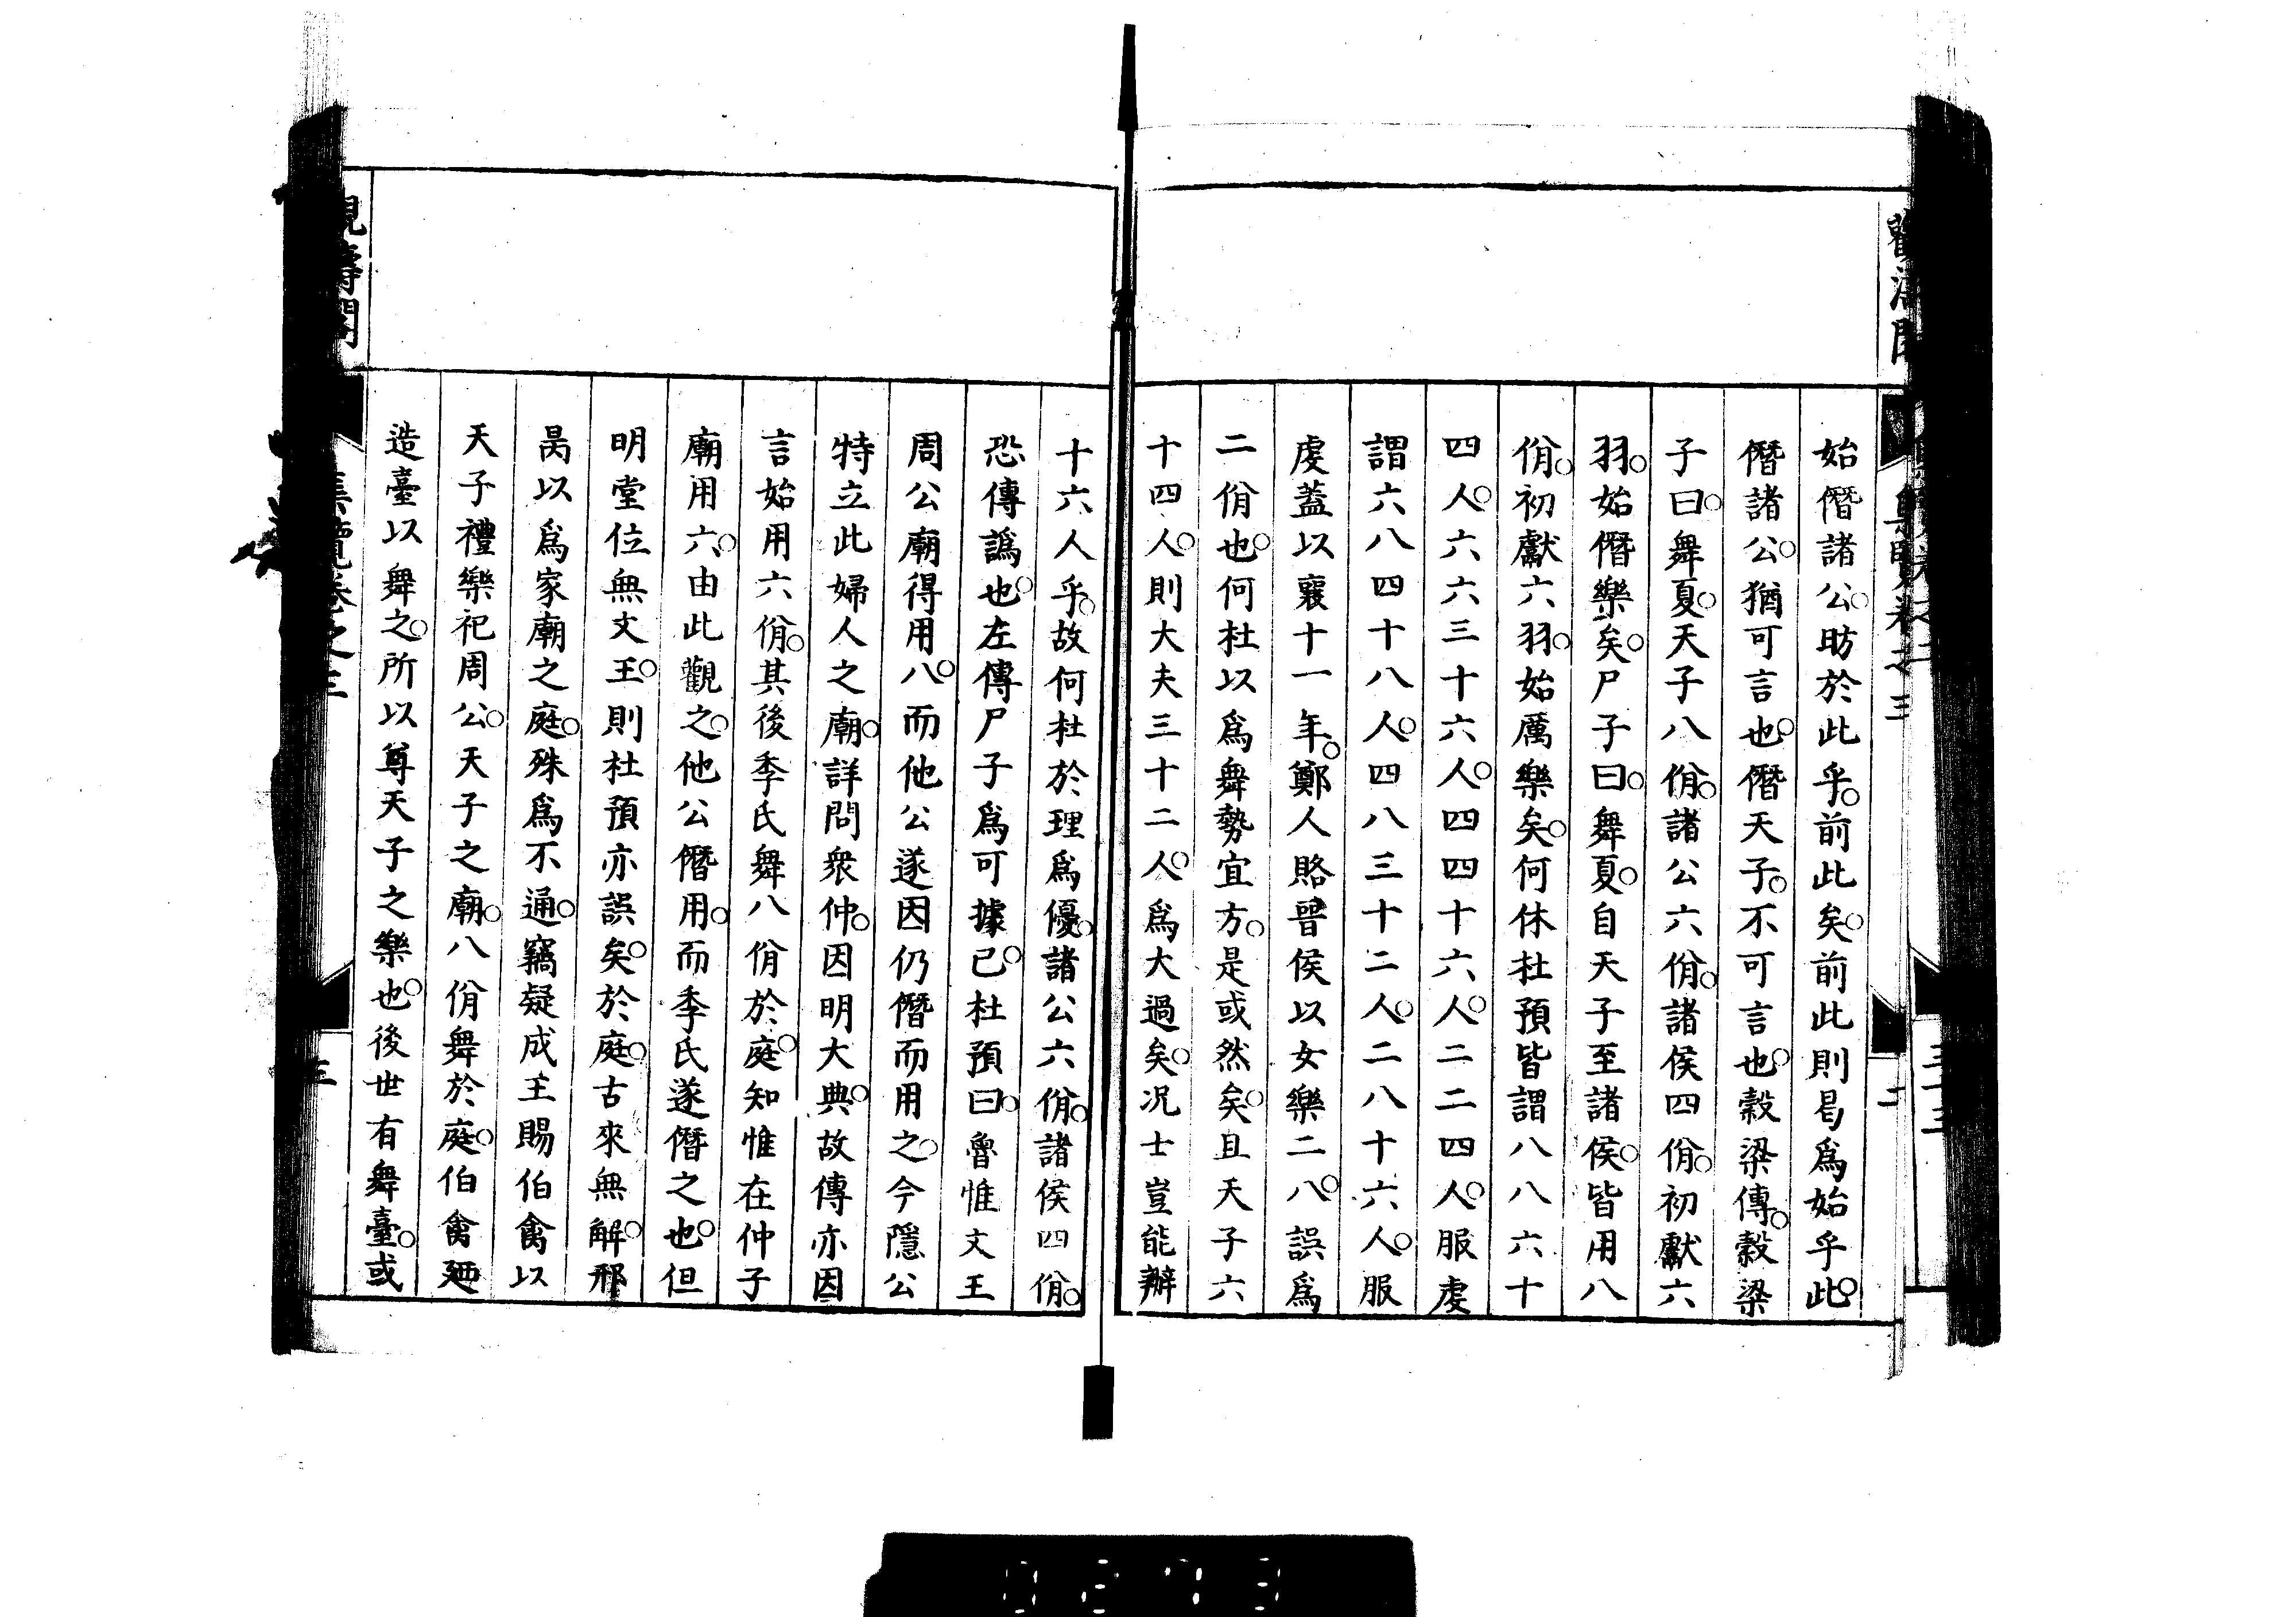 始僭諸公昉於此乎前此矣前此則曷爲始乎此
僭諸公猶可言也僭天子不可言也穀梁傳穀梁
子曰舞夏天子八佾諸公六佾諸侯四佾初獻六
羽始僭樂矣尸子曰舞夏自天子至諸侯皆用八
佾初獻六羽始厲樂矣何休杜預皆謂八八六十
四人六六三十六人四四十六人二二四人服虔
謂六八四十八人四八三十二人二八十六人服
虔蓋以襄十一年鄭人賂晉侯以女樂二八誤爲
二佾也何杜以爲舞勢宜方是或然矣且天子六
十四人則大夫三十二人爲大過矣况士豈能辦
十六人乎故何杜於理爲優諸公六佾諸侯四佾
恐傳譌也左傳尸子爲可據已杜預曰魯惟文王
周公廟得用八而他公遂因仍僭而用之今隱公
特立此婦人之廟詳問衆仲因明大典故傳亦因
言始用六佾其後季氏舞八佾於庭知惟在仲子
廟用六由此觀之他公僭用而季氏遂僭之也但
明堂位無文王則杜預亦誤矣於庭古來無解邢
昺以爲家廟之庭殊爲不通竊疑成王賜伯禽以
天子禮樂祀周公天子之廟八佾舞於庭伯禽廼
造臺以舞之所以尊天子之樂也後世有舞臺或
集覽卷之三